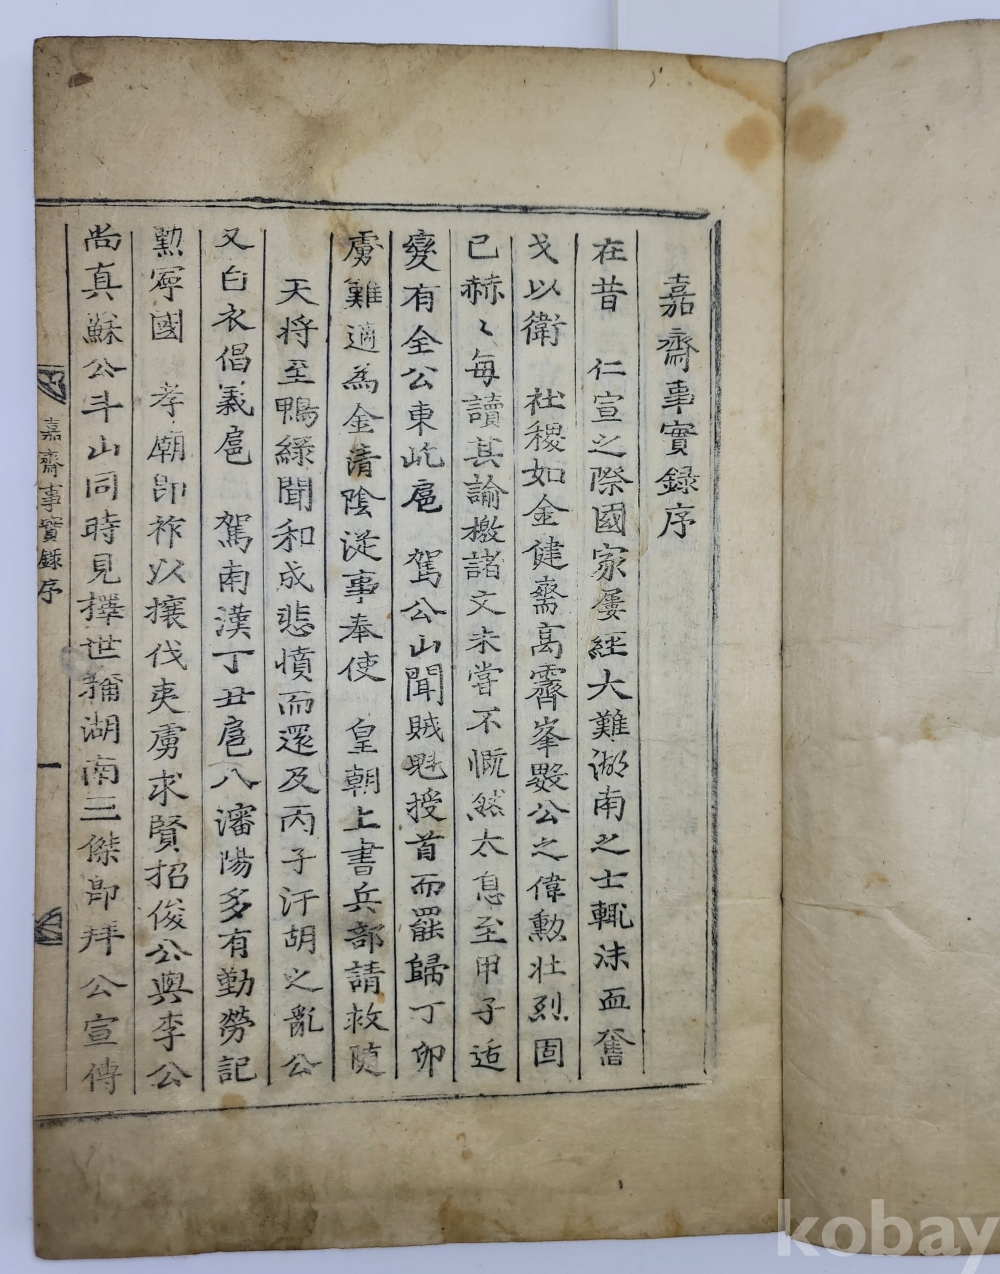 嘉齋事實錄序
在昔　仁宣之際國家屢經大難湖南之士輒沬血奮
戈以衛　社稷如金健齋高霽峯數公之偉勳壯烈固
已赫〻每讀其諭檄諸文未嘗不慨然太息至甲子适
變有全公東屹扈　駕公山聞賊魁授首而罷歸丁卯
虜難適為金淸陰從事奉使　皇朝上書兵部請救随
天将至鴨綠聞和成悲憤而還及丙子汗胡之亂公
又白衣倡義扈　駕南漢丁丑扈入瀋陽多有勤勞記
勲寧國　孝廟卽祚以攘伐夷虜求賢招俊公與李公
尚真蘇公斗山同時見擇世稱湖南三傑卽拜公宣傳
嘉齋事實錄序
一
kobay